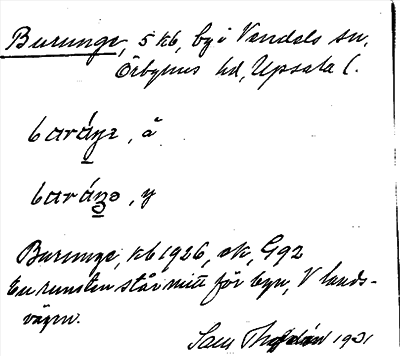 Burunge, 5 kb, by i Vendels sn,
Örbyhus hd, Upsala l.
baráŋə, å
baráŋə, y
Burunge, kb 1926, ek, G92
En runsten står mitt för byn, V lands-
vägen.
1931